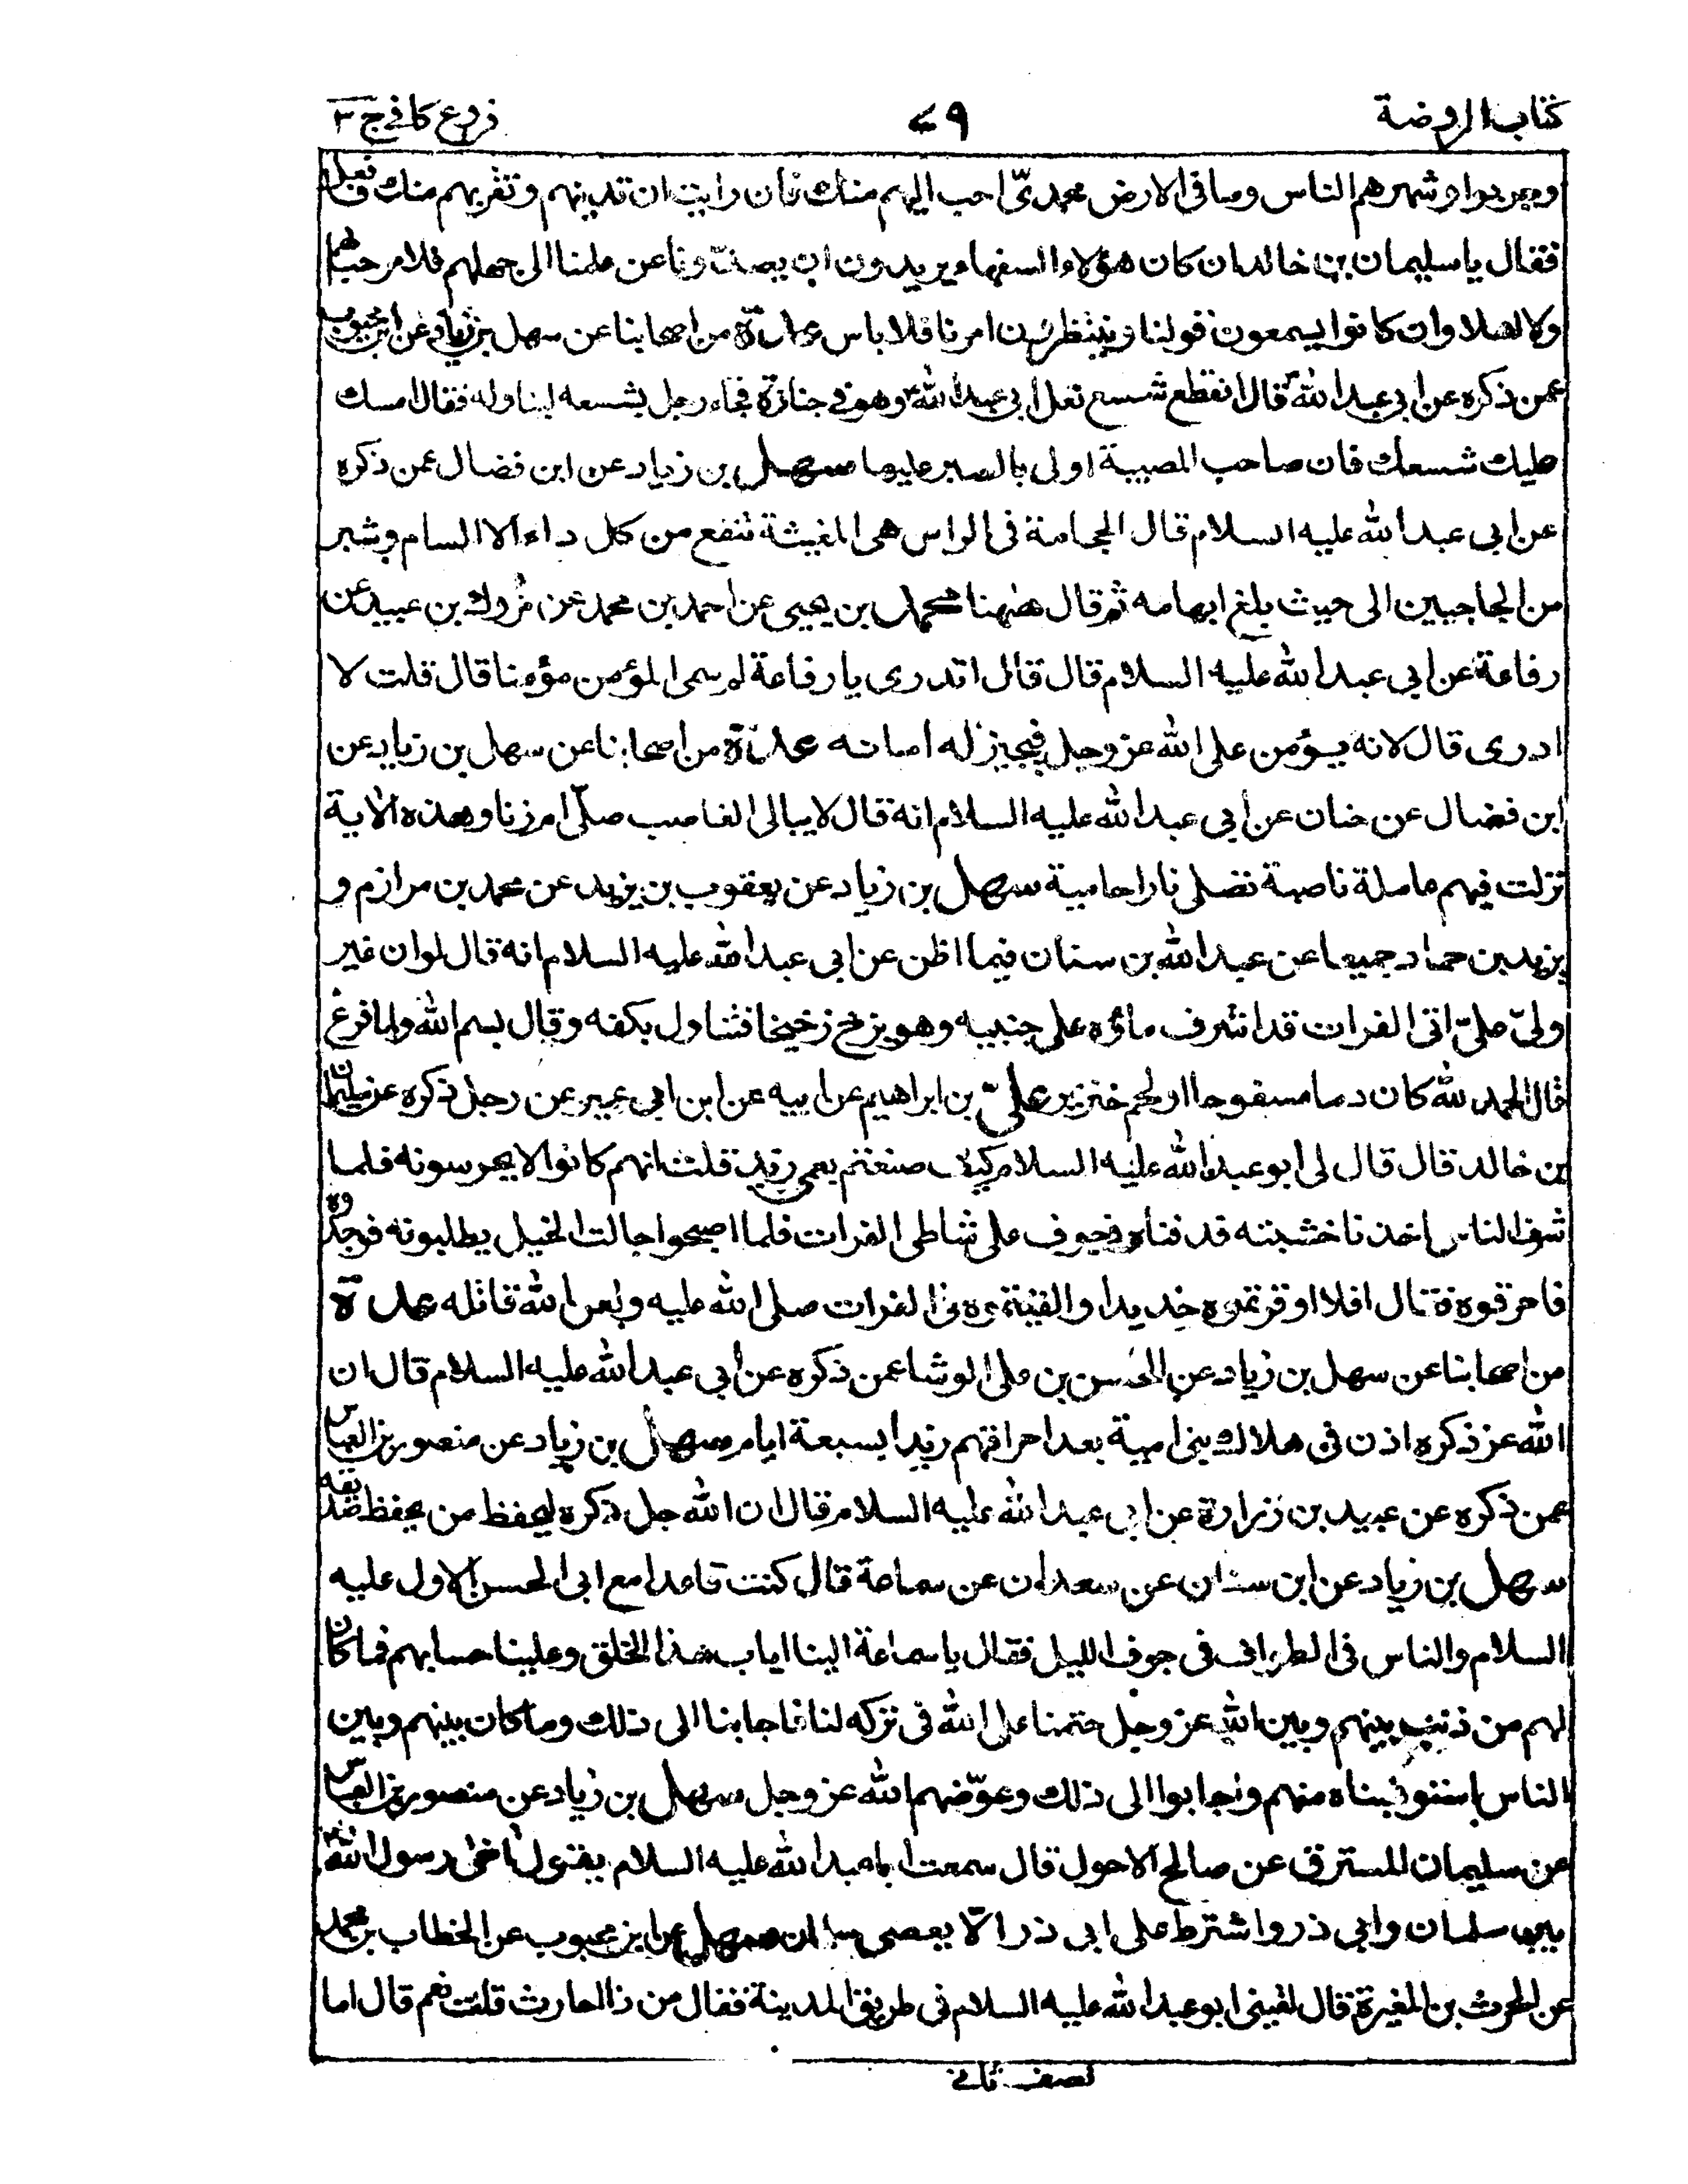 كتاب الروضة ٧٩ فروع كافي ج ٣
وجربوا وشهرهم الناس وما في الارض محمديّ احب اليهم منك فان رايت ان تدنيهم وتقربهم منك فافعل
فقال يا سليمان بن خالد ان كان هؤلاء السفهاء يريدون ان يصدّونا عن علمنا الى جهلهم فلا مرحبا بهم
ولا اهلا وان كانوا يسمعون قولنا وينتظرون امرنا فلا باس عدّة من اصحابنا عن سهل بن زياد عن ابن محبوب
عمن ذكره عن ابي عبد الله قال انقطع شسع نعل ابي عبد الله وهو في جنازة فجاء رجل بشسعه ليناوله فقال امسك
عليك شسعك فان صاحب المصيبة اولى بالصبر عليها سهل بن زياد عن ابن فضال عمن ذكره
عن ابي عبد الله عليه السلام قال الحجامة في الراس هي المغيثة تنفع من كل داء الا السام وشبر
من الحاجبين الى حيث بلغ ابهامه ثم قال ههنا محمد بن يحيى عن احمد بن محمد عن مروك بن عبيد عن
رفاعة عن ابي عبد الله عليه السلام قال قال اتدرى يا رفاعة لم سمى المؤمن مؤمنا قال قلت لا
ادرى قال لانه يؤمن على الله عز وجل فيجيز له امانه عدّة من اصحابنا عن سهل بن زياد عن
ابن فضال عن حنان عن ابي عبد الله عليه السلام انه قال لا يبالى الناصب صلّى ام زنا وهذه الاية
نزلت فيهم عاملة ناصبة تصلى نارا حامية سهل بن زياد عن يعقوب بن يزيد عن محمد بن مرازم و
يزيد بن حماد جميعا عن عبد الله بن سنان فيما اظن عن ابي عبد الله عليه السلام انه قال لو ان غير
وليّ عليّ اتى الفرات قد اشرف ماؤه على جنبيه وهو يزخ زخيخا فتناول بكفه وقال بسم الله ولما فرغ
قال الحمد لله كان دما مسفوحا او لحم خنزير عليّ بن ابراهيم عن ابيه عن ابن ابي عمير عن رجل ذكره عن سليمان
بن خالد قال قال لى ابو عبد الله عليه السلام كيف صنعتم بعمي زيد قلت انهم كانوا لا يحرسونه فلما
شف الناس اخذنا خشبته قد فناه في جوف على شاطى الفرات فلما اصبحوا جالت الخيل يطلبونه فوجدوه
فاحرقوه فقال افلا اوقرتموه حديدا والقيتموه فى الفرات صلى الله عليه ولعن الله قاتله عدة
من اصحابنا عن سهل بن زياد عن الحسن بن على الوشا عمن ذكره عن ابي عبد الله عليه السلام قال ان
الله عز ذكره اذن في هلاك بني امية بعد احراقهم زيدا بسبعة ايام سهل بن زياد عن منصور بن العباس
عمن ذكره عن عبيد بن زرارة عن ابي عبد الله عليه السلام قال ان الله جل ذكره ليحفظ من يحفظ صديقه
سهل بن زياد عن ابن سنان عن سعدان عن سماعة قال كنت قاعدا مع ابى الحسن الاول عليه
السلام والناس فى الطواف في جوف الليل فقال يا سماعة الينا اياب هذا الخلق وعلينا حسابهم فما كان
لهم من ذنب بينهم وبين الله عز وجل حتمنا على الله في تركه لنا فاجابنا الى ذلك وما كان بينهم وبين
الناس استوهبناه منهم واجابوا الى ذلك وعوّضهم الله عز وجل سهل بن زياد عن منصور بن العباس
عن سليمان المسترق عن صالح الاحول قال سمعت ابا عبد الله عليه السلام يقول اخى رسول الله
بين سلمان وابي ذر واشترط على ابى ذر الّا يعصى سلمان سهل عن ابن محبوب عن الخطاب بن محمد
عن الحرث بن المغيرة قال لقينى ابو عبد الله عليه السلام في طريق المدينة فقال من ذا احارث قلت نعم قال اما
نصف ثاني